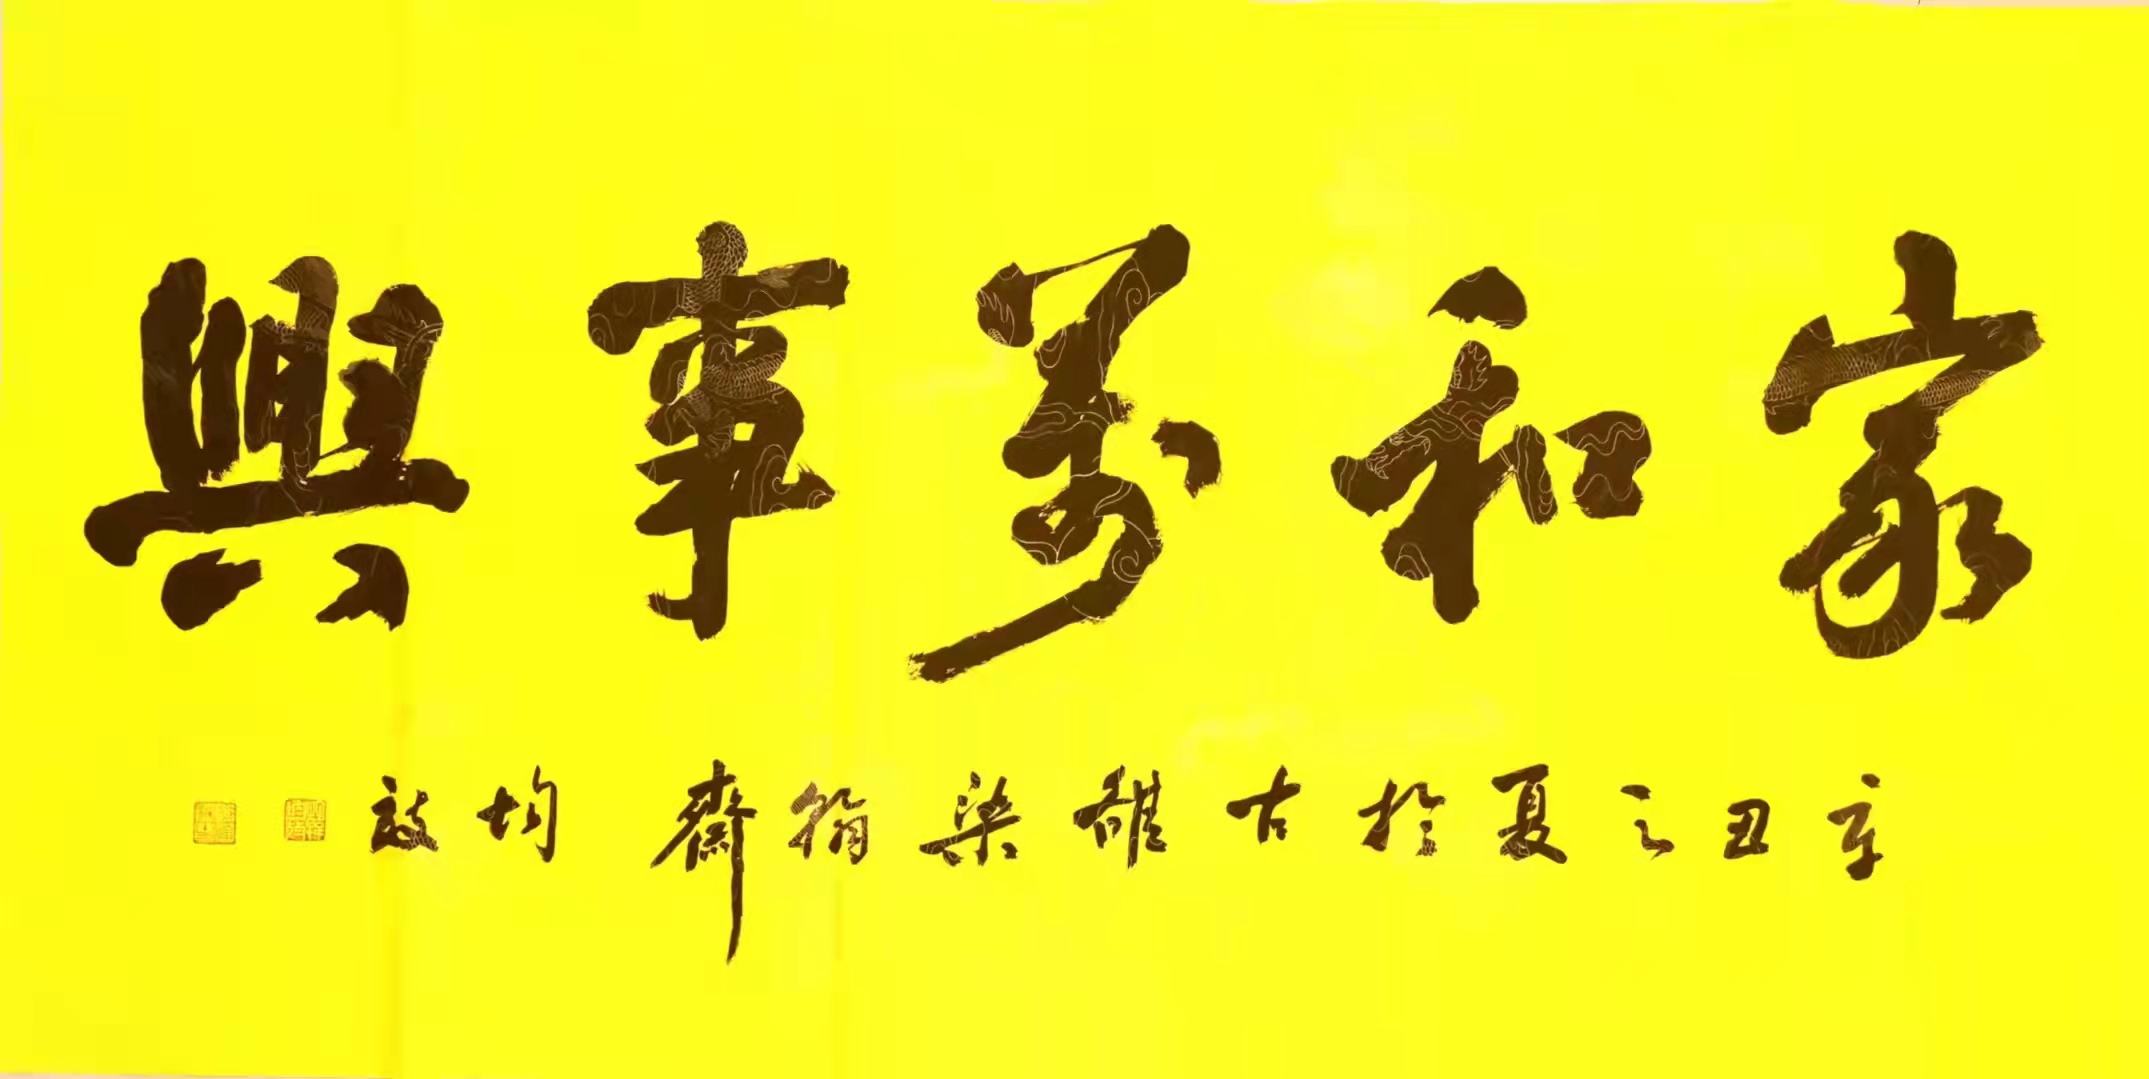 家和萬事興
辛丑之夏於古雒染翰齋 均啟